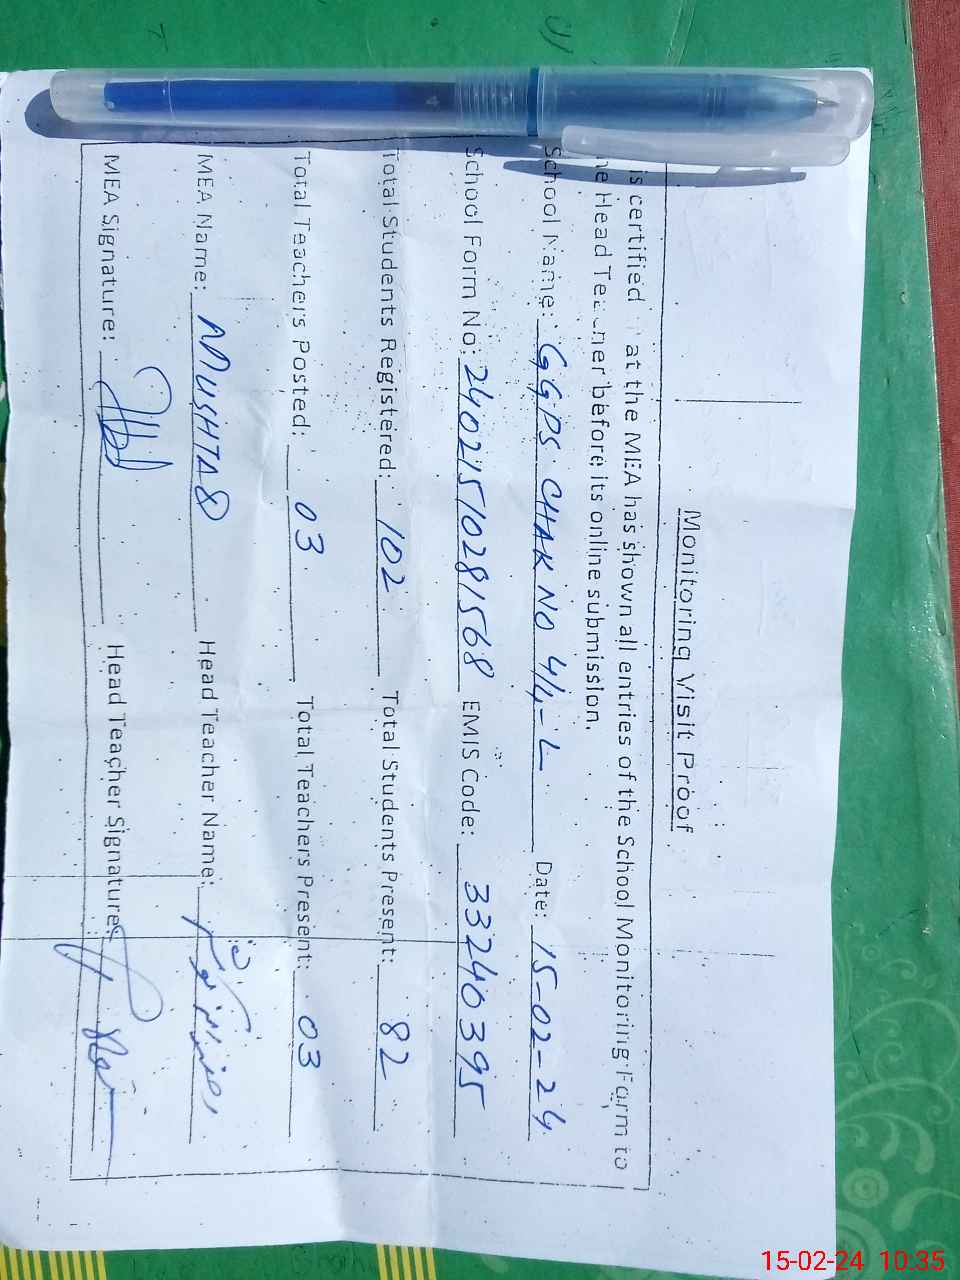 Monitoring Visit Proof
is certified at the MEA has shown all entries of the School Monitoring Form to
he Head Teacher before its online submission.
School Name: GGPS CHAK NO 4/4-L Date: 15-02-24
School Form No: 24021510281568 EMIS Code: 33240395
Total Students Registered: 102 Total Students Present: 82
Total Teachers Posted: 03 Total Teachers Present: 03
MEA Name: MUSHTAQ Head Teacher Name:
MEA Signature: Head Teacher Signature:
15-02-24 10:35